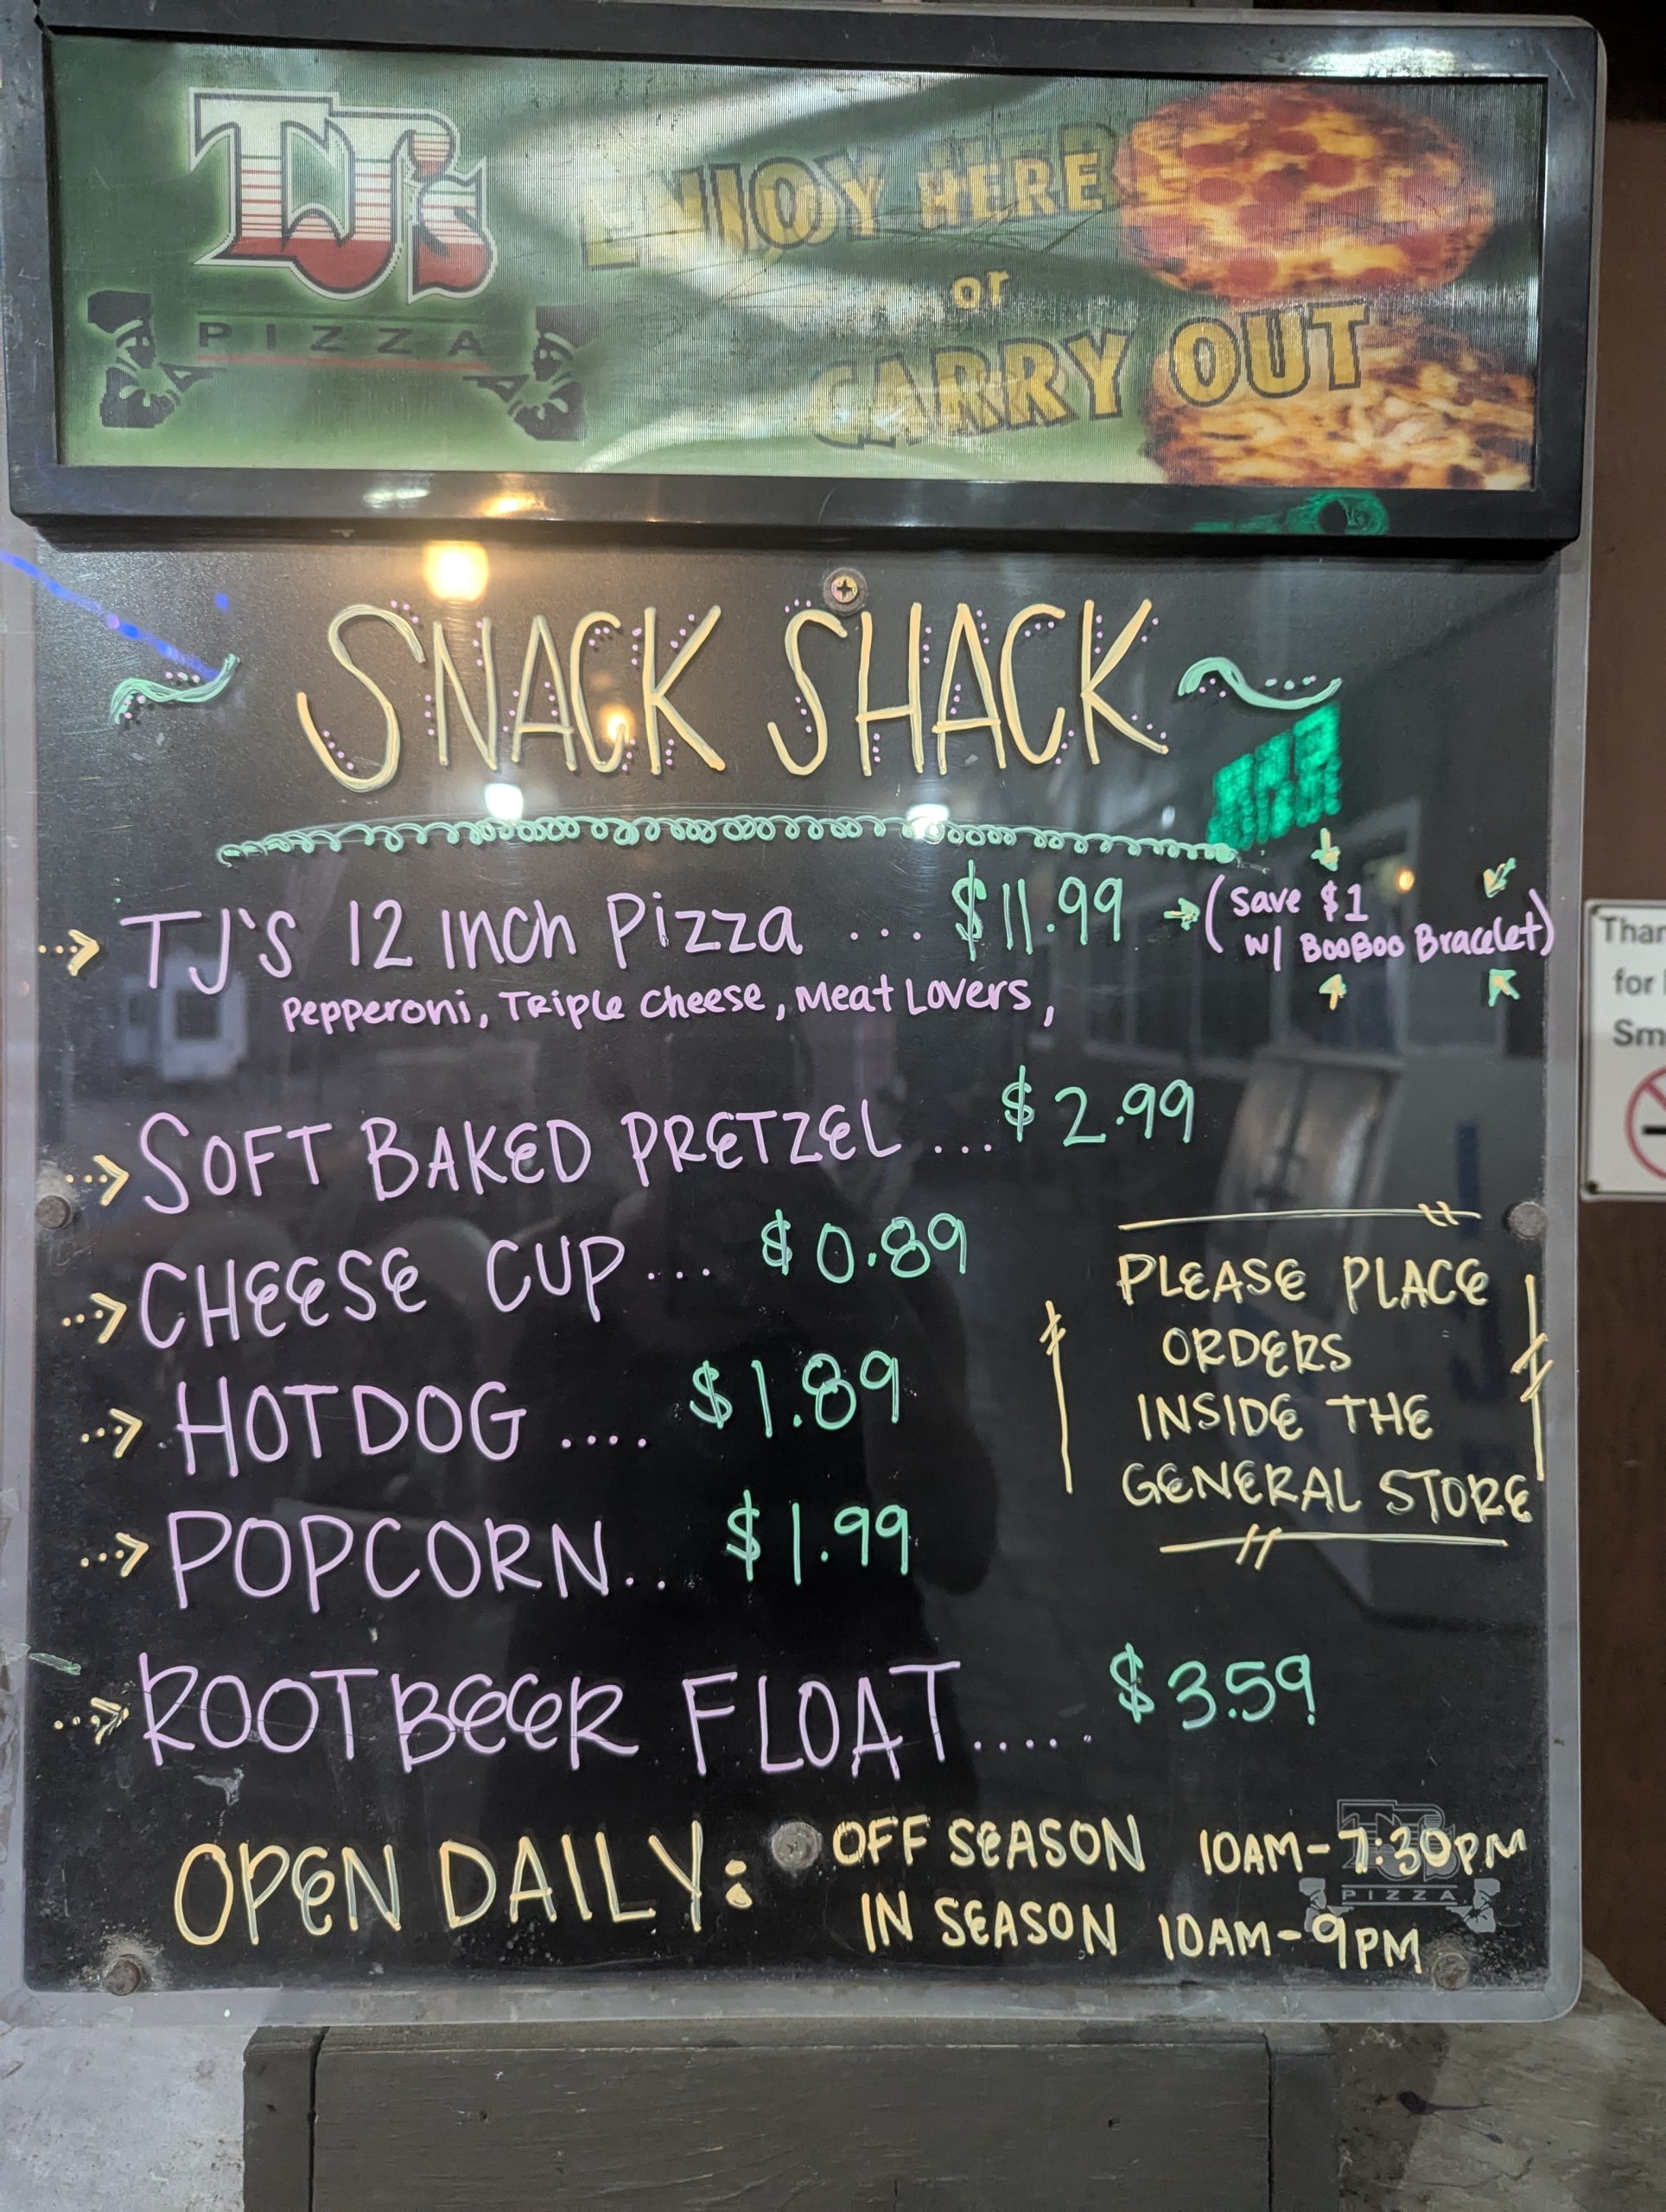 TJ's
PIZZA
ENJOY HERE
or
CARRY OUT
SNACK SHACK
TJ'S 12 INCH PIZZA ... $11.99 → (Save $1
w/ BooBoo Bracelet)
Pepperoni, Triple Cheese, Meat Lovers,
SOFT BAKED PRETZEL ... $2.99
CHEESE CUP ... $0.89
HOTDOG .... $1.89
POPCORN... $1.99
ROOTBEER FLOAT..... $3.59
PLEASE PLACE
ORDERS
INSIDE THE
GENERAL STORE
OPEN DAILY: OFF SEASON 10AM-7:30PM
IN SEASON 10AM-9PM
PIZZA
for